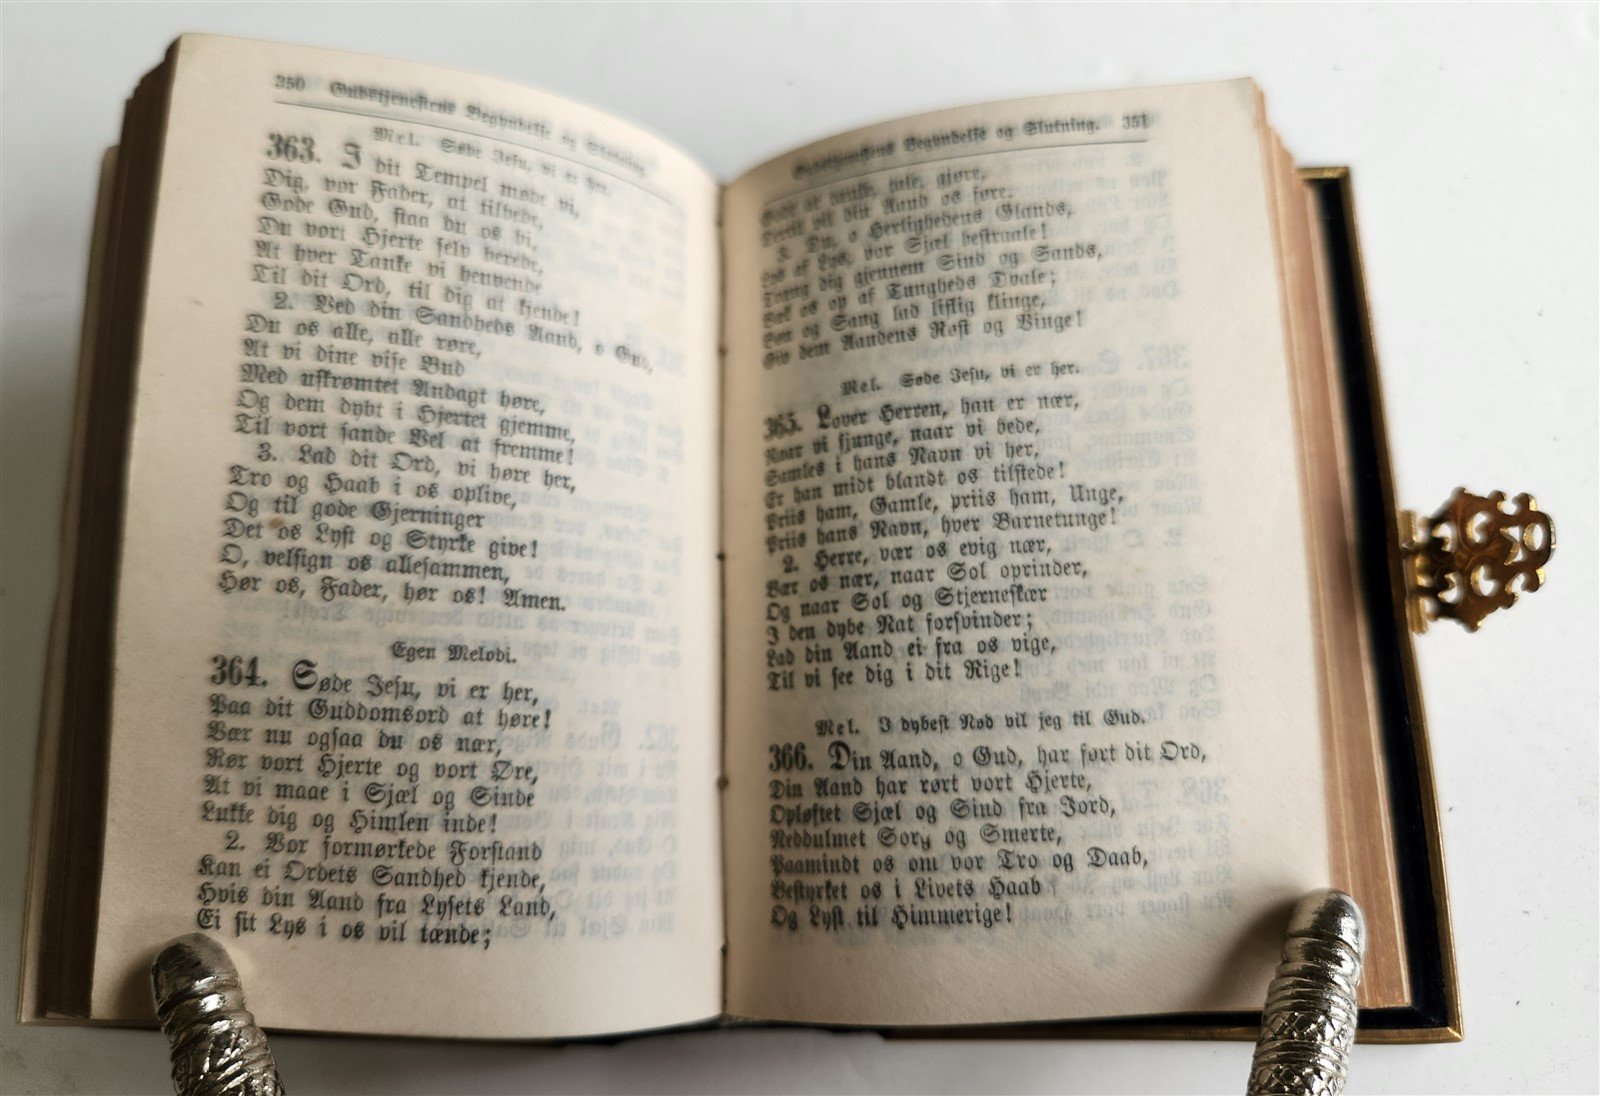 350 Gudstjenestens Begyndelse og Slutning.
Mel. Søde Jesu, vi er her.
363. I dit Tempel møde vi,
Dig, vor Fader, at tilbede,
Gode Gud, staa du os bi,
Du vort Hjerte selv berede,
At hver Tanke vi henvende
Til dit Ord, til dig at kjende!
2. Ved din Sandheds Aand, o Gud,
Du os alle, alle røre,
At vi dine vise Bud
Med uskrømtet Andagt høre,
Og dem dybt i Hjertet gjemme,
Til vort sande Vel at fremme!
3. Lad dit Ord, vi høre her,
Tro og Haab i os oplive,
Og til gode Gjerninger
Det os Lyst og Styrke give!
O, velsign os allesammen,
Hør os, Fader, hør os! Amen.
Egen Melodi.
364. Søde Jesu, vi er her,
Paa dit Guddomsord at høre!
Vær nu ogsaa du os nær,
Rør vort Hjerte og vort Øre,
At vi maae i Sjæl og Sinde
Lukke dig og Himlen inde!
2. Vor formørkede Forstand
Kan ei Ordets Sandhed kjende,
Hvis din Aand fra Lysets Land,
Ei sit Lys i os vil tænde;
Gudstjenestens Begyndelse og Slutning. 351
Gode at tænke, tale, gjøre,
Dertil vil din Aand os føre.
3. Du, o Herlighedens Glands,
Lys af Lys, vor Sjæl bestraale!
Træng dig gjennem Sind og Sands,
Væk os op af Tungheds Dvale;
Bøn og Sang lad liflig klinge,
Giv dem Aandens Røst og Vinge!
Mel. Søde Jesu, vi er her.
365. Lover Herren, han er nær,
Naar vi sjunge, naar vi bede,
Samles i hans Navn vi her,
Er han midt blandt os tilstede!
Priis ham, Gamle, priis ham, Unge,
Priis hans Navn, hver Barnetunge!
2. Herre, vær os evig nær,
Vær os nær, naar Sol oprinder,
Og naar Sol og Stjerneskær
I den dybe Nat forsvinder;
Lad din Aand ei fra os vige,
Til vi see dig i dit Rige!
Mel. I dybest Nød vil jeg til Gud.
366. Din Aand, o Gud, har ført dit Ord,
Din Aand har rørt vort Hjerte,
Opløftet Sjæl og Sind fra Jord,
Neddulmet Sorg og Smerte,
Paamindt os om vor Tro og Daab,
Bestyrket os i Livets Haab
Og Lyst til Himmerige!